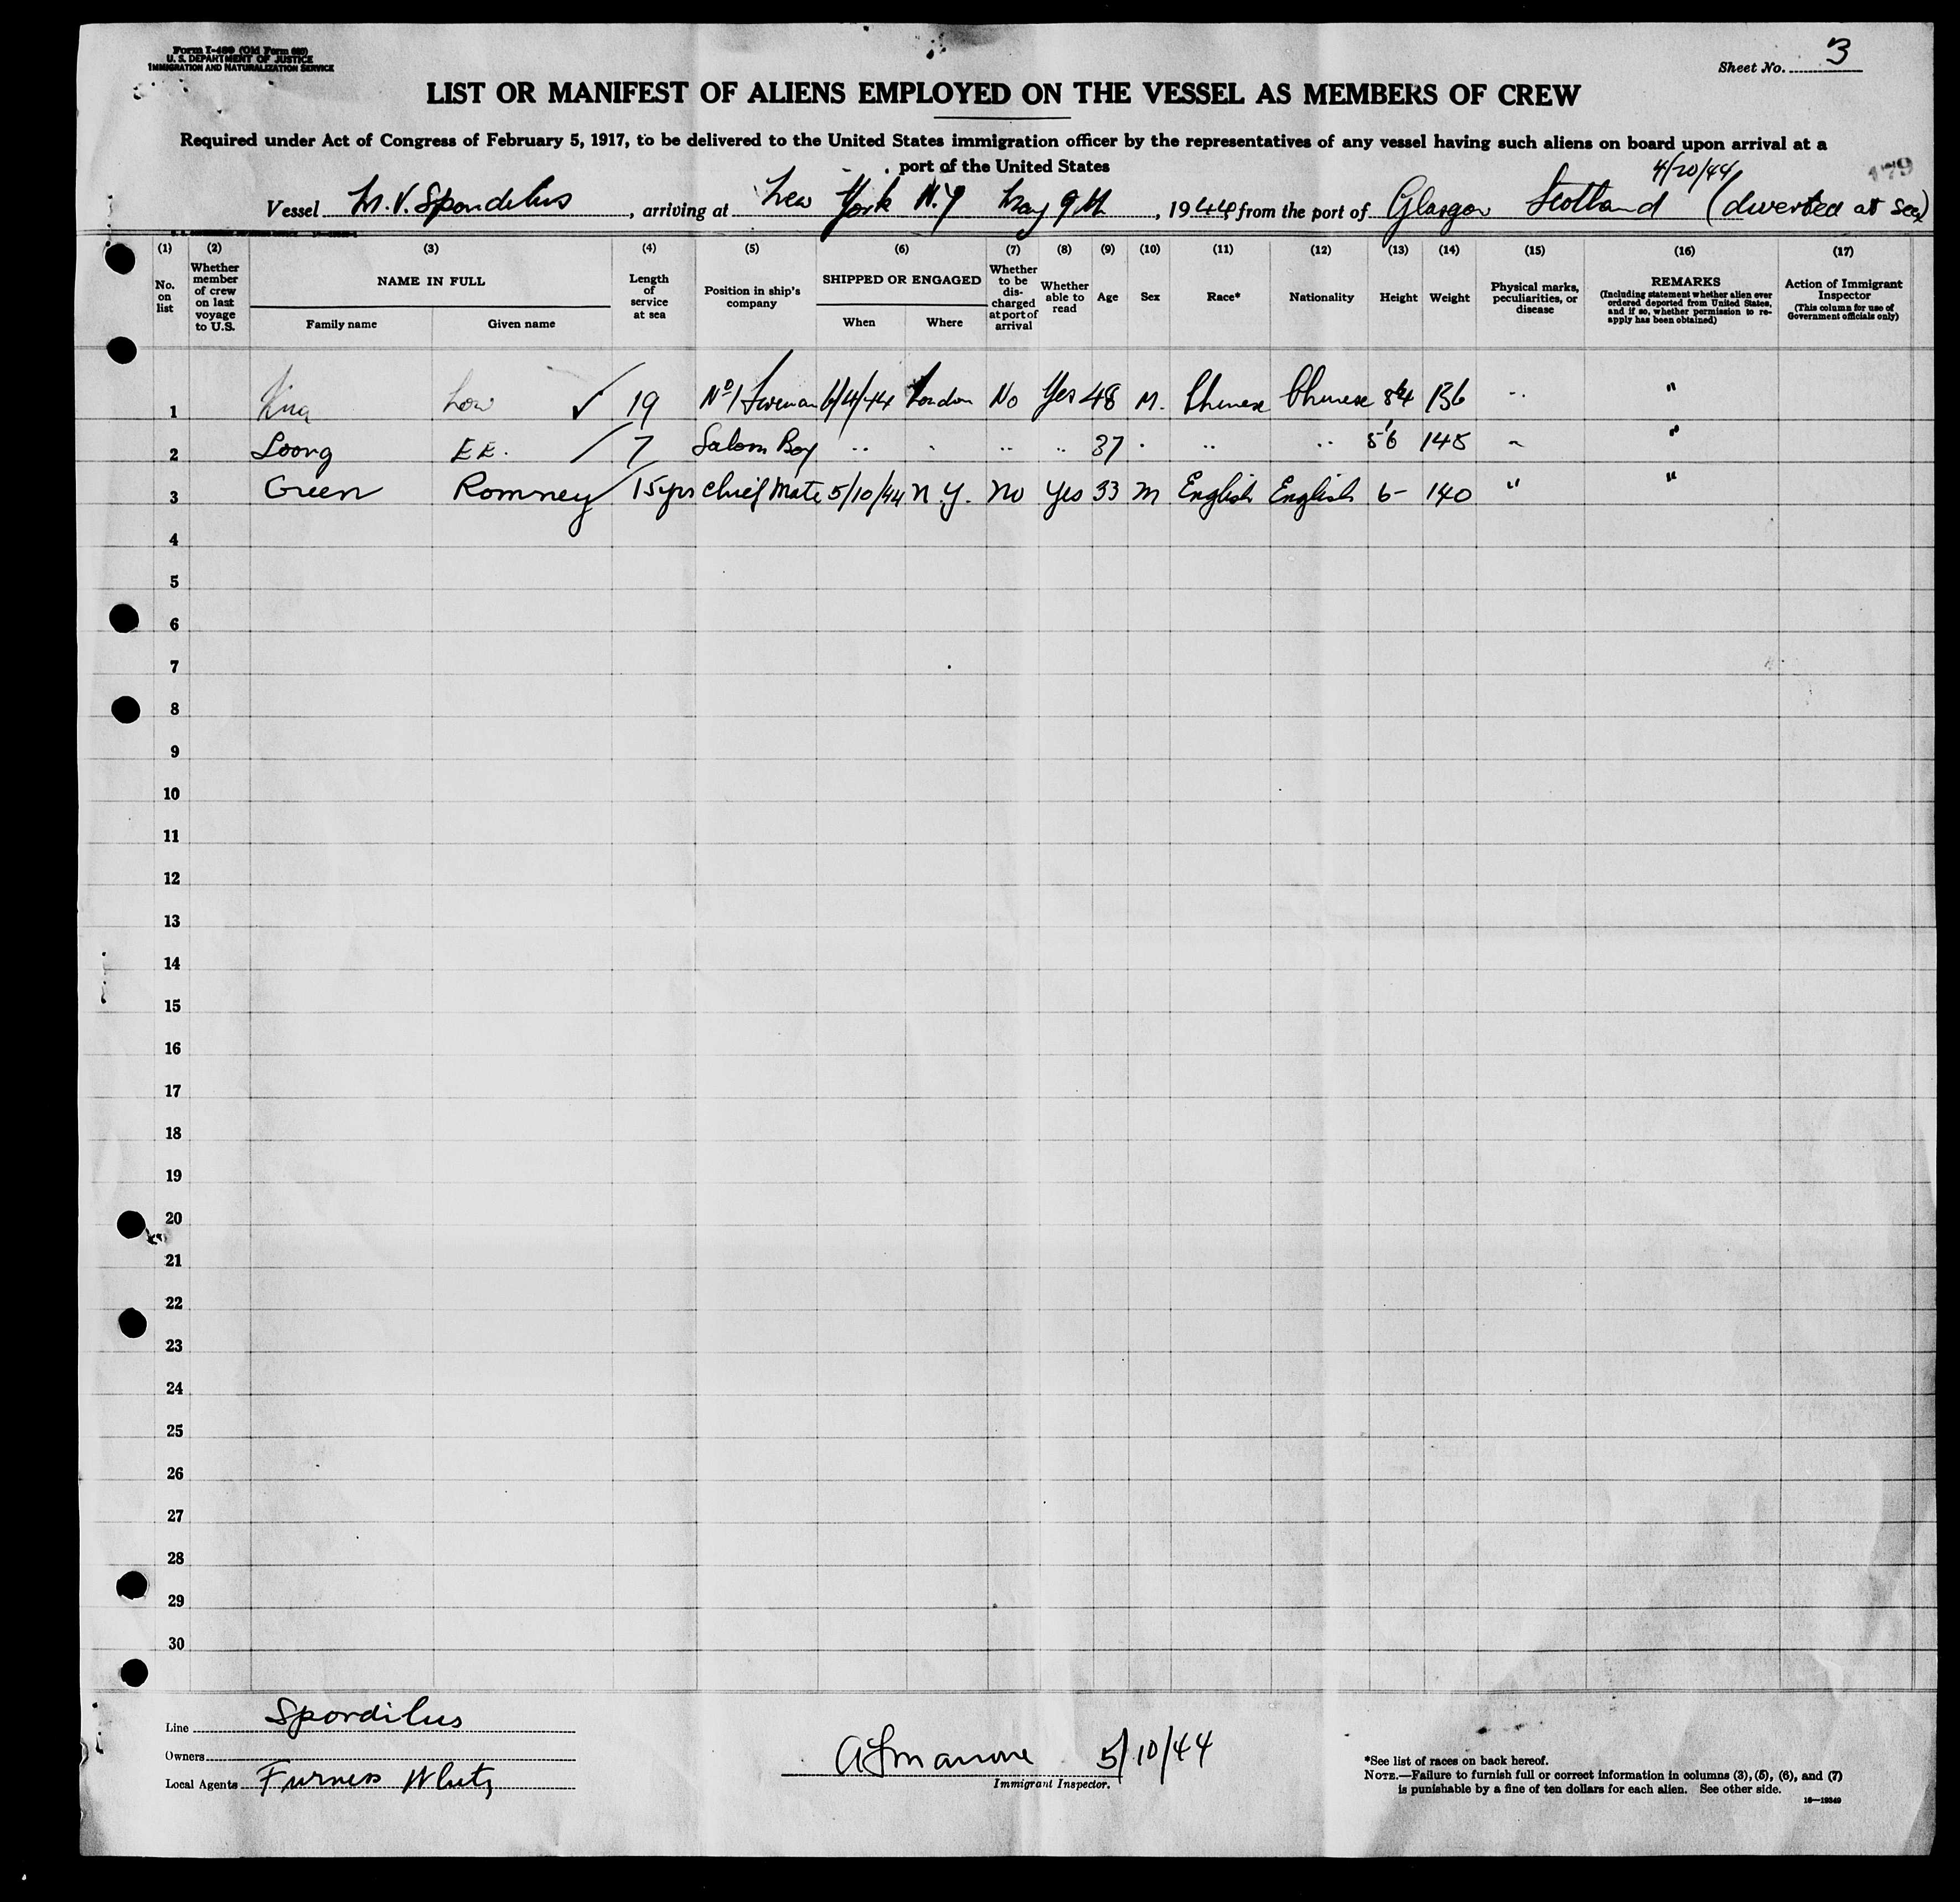 Form I-480 (Old Form 680)
U. S. DEPARTMENT OF JUSTICE
IMMIGRATION AND NATURALIZATION SERVICE
Sheet No. 3
LIST OR MANIFEST OF ALIENS EMPLOYED ON THE VESSEL AS MEMBERS OF CREW
Required under Act of Congress of February 5, 1917, to be delivered to the United States immigration officer by the representatives of any vessel having such aliens on board upon arrival at a
port of the United States
4/20/44 179
Vessel M.V. Spondilus, arriving at New York N.Y May 9th, 1944 from the port of Glasgow Scotland (diverted at Sea)
(1) (2) (3) (4) (5) (6) (7) (8) (9) (10) (11) (12) (13) (14) (15) (16) (17)
No. on list
Whether member of crew on last voyage to U.S.
NAME IN FULL
Family name Given name
Length of service at sea
Position in ship's company
SHIPPED OR ENGAGED
When Where
Whether to be discharged at port of arrival
Whether able to read
Age
Sex
Race*
Nationality
Height
Weight
Physical marks, peculiarities, or disease
REMARKS
(Including statement whether alien ever ordered deported from United States, and if so, whether permission to reapply has been obtained)
Action of Immigrant Inspector
(This column for use of Government officials only)
1 Low ✓ 19 No 1 Fireman London No Yes 48 M. Chinese Chinese 136 " "
2 Loong EE. / 7 Saloon Boy " " " " 37 " " " 5'6 145 "
3 Green Romney / 15yrs Chief Mate 5/10/44 N.Y. No Yes 33 M English English 6- 140 " "
4
5
6
7
8
9
10
11
12
13
14
15
16
17
18
19
20
21
22
23
24
25
26
27
28
29
30
Line Spordilus
Owners
Local Agents Furness
5/10/44
Immigrant Inspector.
*See list of races on back hereof.
NOTE.—Failure to furnish full or correct information in columns (3), (5), (6), and (7)
is punishable by a fine of ten dollars for each alien. See other side.
16—19349